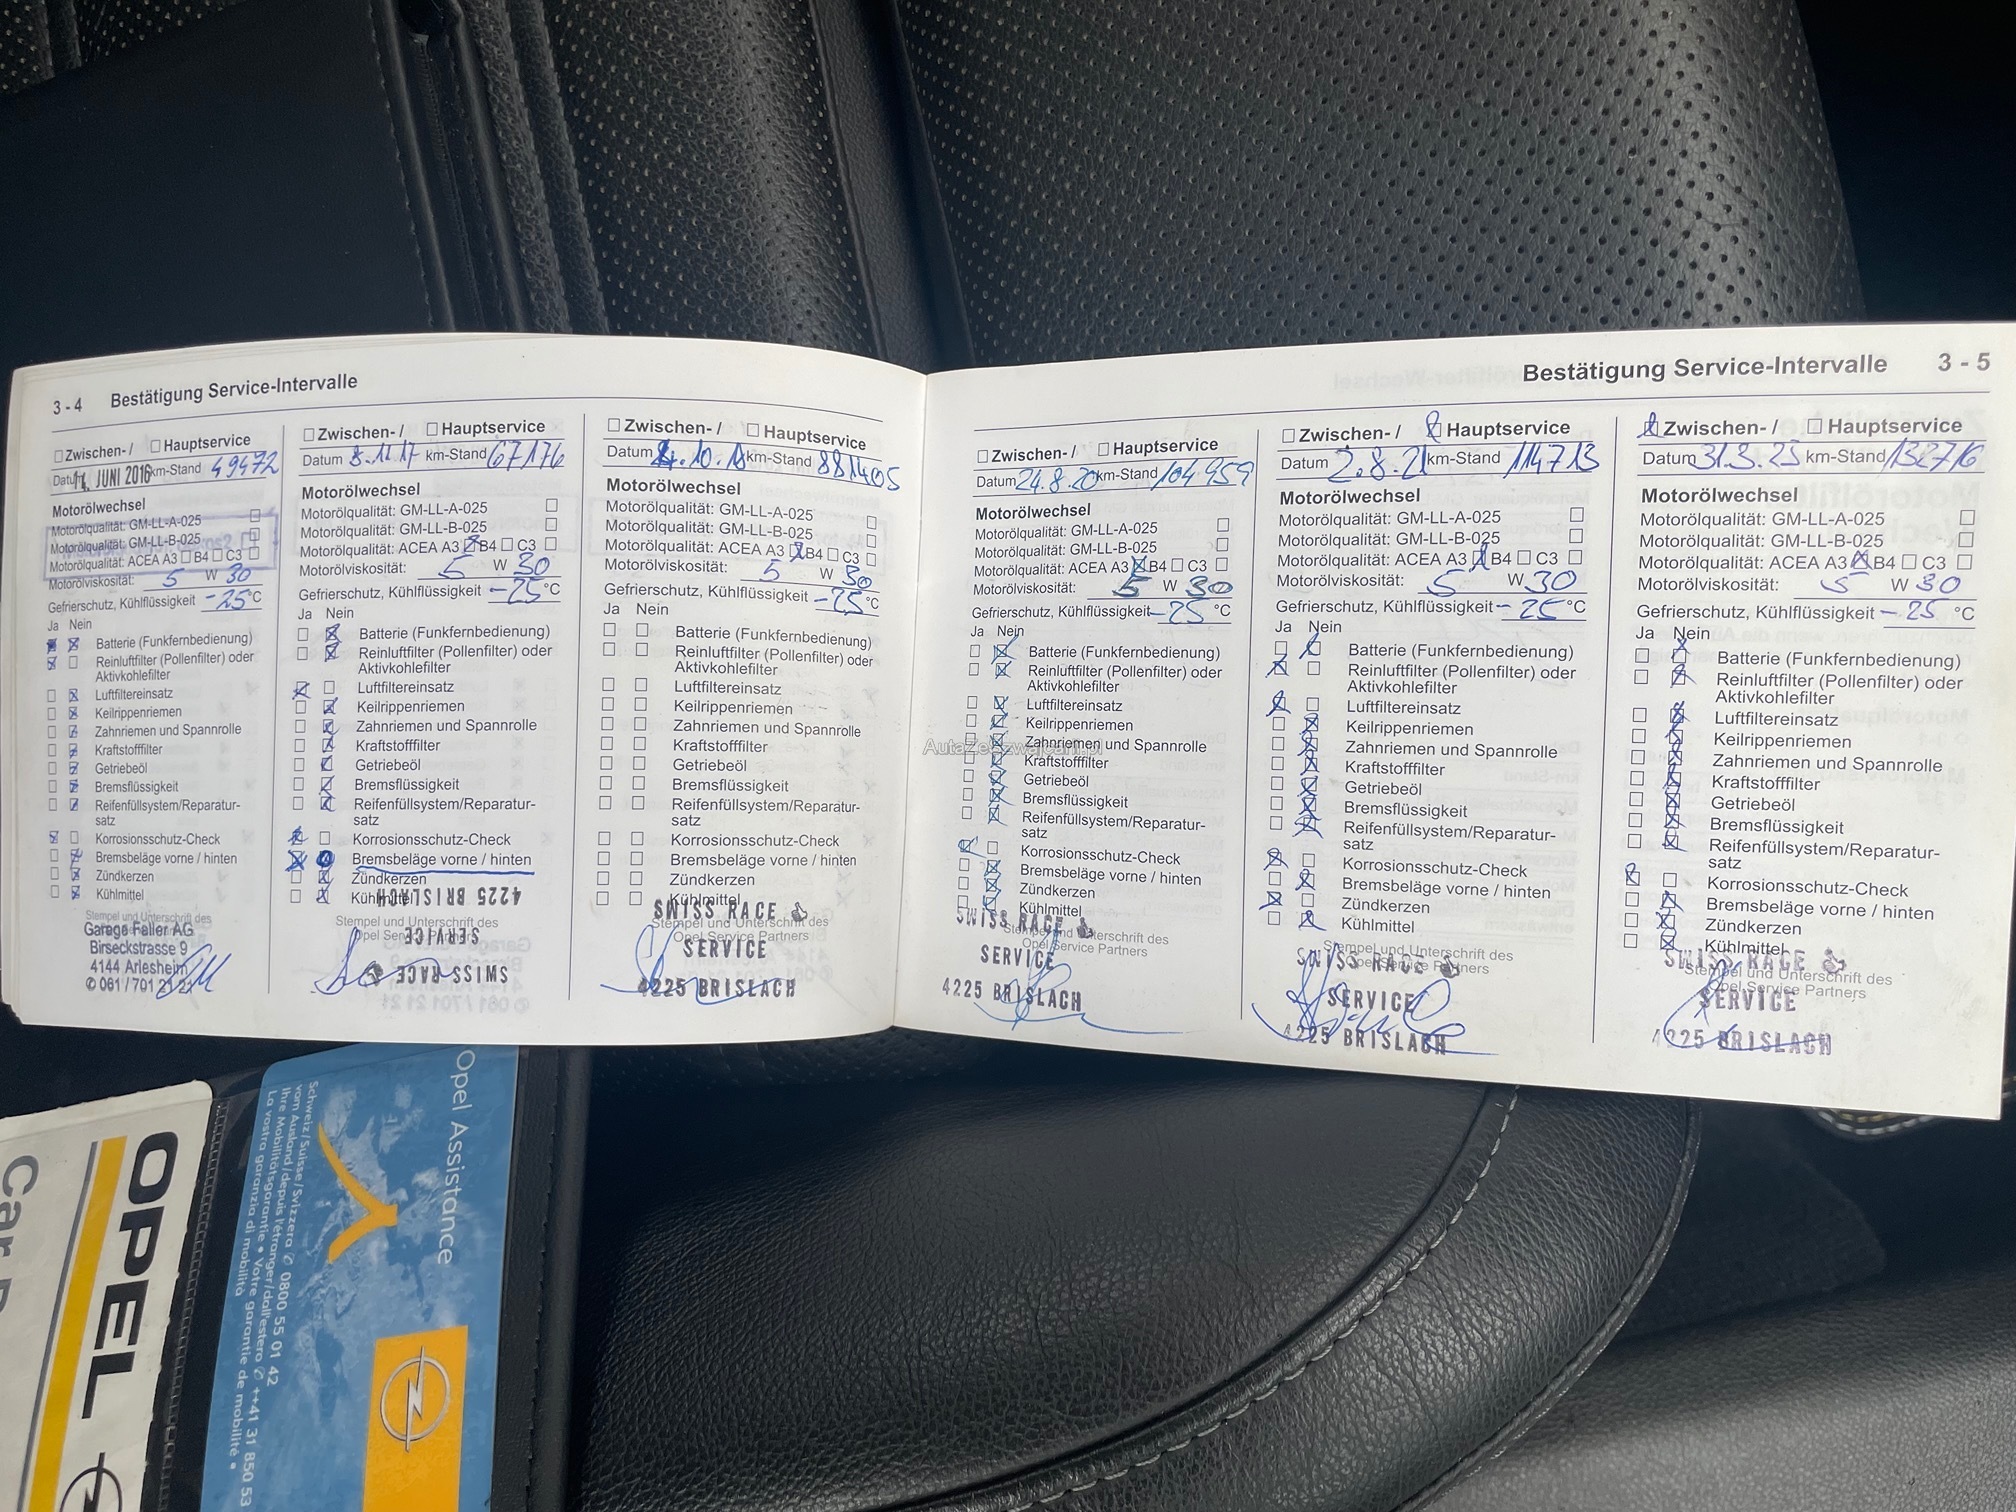 3 - 4 Bestätigung Service-Intervalle
Zwischen- / Hauptservice
Datum 1. JUNI 2016 km-Stand 49472
Motorölwechsel
Motorölqualität: GM-LL-A-025
Motorölqualität: GM-LL-B-025
Motorölqualität: ACEA A3 B4 C3
Motorölviskosität: 5 W 30
Gefrierschutz, Kühlflüssigkeit -25 °C
Ja Nein
Batterie (Funkfernbedienung)
Reinluftfilter (Pollenfilter) oder
Aktivkohlefilter
Luftfiltereinsatz
Keilrippenriemen
Zahnriemen und Spannrolle
Kraftstofffilter
Getriebeöl
Bremsflüssigkeit
Reifenfüllsystem/Reparatur-
satz
Korrosionsschutz-Check
Bremsbeläge vorne / hinten
Zündkerzen
Kühlmittel
Stempel und Unterschrift des
Garage Faller AG
Birseckstrasse 9
4144 Arlesheim
✆ 061 / 701 21 21
Zwischen- / Hauptservice
Datum 3.11.17 km-Stand 67176
Motorölwechsel
Motorölqualität: GM-LL-A-025
Motorölqualität: GM-LL-B-025
Motorölqualität: ACEA A3 B4 C3
Motorölviskosität: 5 W 30
Gefrierschutz, Kühlflüssigkeit -25 °C
Ja Nein
Batterie (Funkfernbedienung)
Reinluftfilter (Pollenfilter) oder
Aktivkohlefilter
Luftfiltereinsatz
Keilrippenriemen
Zahnriemen und Spannrolle
Kraftstofffilter
Getriebeöl
Bremsflüssigkeit
Reifenfüllsystem/Reparatur-
satz
Korrosionsschutz-Check
Bremsbeläge vorne / hinten
Zündkerzen
Kühlmittel
Stempel und Unterschrift des
SWISS RACE
SERVICE
4225 BRISLACH
Zwischen- / Hauptservice
Datum .10.18 km-Stand 881405
Motorölwechsel
Motorölqualität: GM-LL-A-025
Motorölqualität: GM-LL-B-025
Motorölqualität: ACEA A3 B4 C3
Motorölviskosität: 5 W 30
Gefrierschutz, Kühlflüssigkeit -25 °C
Ja Nein
Batterie (Funkfernbedienung)
Reinluftfilter (Pollenfilter) oder
Aktivkohlefilter
Luftfiltereinsatz
Keilrippenriemen
Zahnriemen und Spannrolle
Kraftstofffilter
Getriebeöl
Bremsflüssigkeit
Reifenfüllsystem/Reparatur-
satz
Korrosionsschutz-Check
Bremsbeläge vorne / hinten
Zündkerzen
Kühlmittel
SWISS RACE
Stempel und Unterschrift des
Opel Service Partners
SERVICE
4225 BRISLACH
Bestätigung Service-Intervalle 3 - 5
Zwischen- / Hauptservice
Datum 24.8.20 km-Stand 104959
Motorölwechsel
Motorölqualität: GM-LL-A-025
Motorölqualität: GM-LL-B-025
Motorölqualität: ACEA A3 B4 C3
Motorölviskosität: 5 W 30
Gefrierschutz, Kühlflüssigkeit -25 °C
Ja Nein
Batterie (Funkfernbedienung)
Reinluftfilter (Pollenfilter) oder
Aktivkohlefilter
Luftfiltereinsatz
Keilrippenriemen
Zahnriemen und Spannrolle
Kraftstofffilter
Getriebeöl
Bremsflüssigkeit
Reifenfüllsystem/Reparatur-
satz
Korrosionsschutz-Check
Bremsbeläge vorne / hinten
Zündkerzen
Kühlmittel
SWISS RACE
Stempel und Unterschrift des
Opel Service Partners
SERVICE
4225 BRISLACH
Zwischen- / Hauptservice
Datum 2.8.21 km-Stand 114713
Motorölwechsel
Motorölqualität: GM-LL-A-025
Motorölqualität: GM-LL-B-025
Motorölqualität: ACEA A3 B4 C3
Motorölviskosität: 5 W 30
Gefrierschutz, Kühlflüssigkeit -25 °C
Ja Nein
Batterie (Funkfernbedienung)
Reinluftfilter (Pollenfilter) oder
Aktivkohlefilter
Luftfiltereinsatz
Keilrippenriemen
Zahnriemen und Spannrolle
Kraftstofffilter
Getriebeöl
Bremsflüssigkeit
Reifenfüllsystem/Reparatur-
satz
Korrosionsschutz-Check
Bremsbeläge vorne / hinten
Zündkerzen
Kühlmittel
Stempel und Unterschrift des
SWISS RACE
SERVICE
4225 BRISLACH
Zwischen- / Hauptservice
Datum 31.3.23 km-Stand 132716
Motorölwechsel
Motorölqualität: GM-LL-A-025
Motorölqualität: GM-LL-B-025
Motorölqualität: ACEA A3 B4 C3
Motorölviskosität: 5 W 30
Gefrierschutz, Kühlflüssigkeit -25 °C
Ja Nein
Batterie (Funkfernbedienung)
Reinluftfilter (Pollenfilter) oder
Aktivkohlefilter
Luftfiltereinsatz
Keilrippenriemen
Zahnriemen und Spannrolle
Kraftstofffilter
Getriebeöl
Bremsflüssigkeit
Reifenfüllsystem/Reparatur-
satz
Korrosionsschutz-Check
Bremsbeläge vorne / hinten
Zündkerzen
Kühlmittel
SWISS RACE
Stempel und Unterschrift des
Opel Service Partners
SERVICE
4225 BRISLACH
AutaZeSzwajcarii.pl
OPEL
Car
Opel Assistance
Schweiz/Suisse/Svizzera ✆ 0800 55 01 42
vom Ausland/depuis l'étranger/dall'estero ✆ ++41 31 850 53
Ihre Mobilitätsgarantie • Votre garantie de mobilité •
La vostra garanzia di mobilità